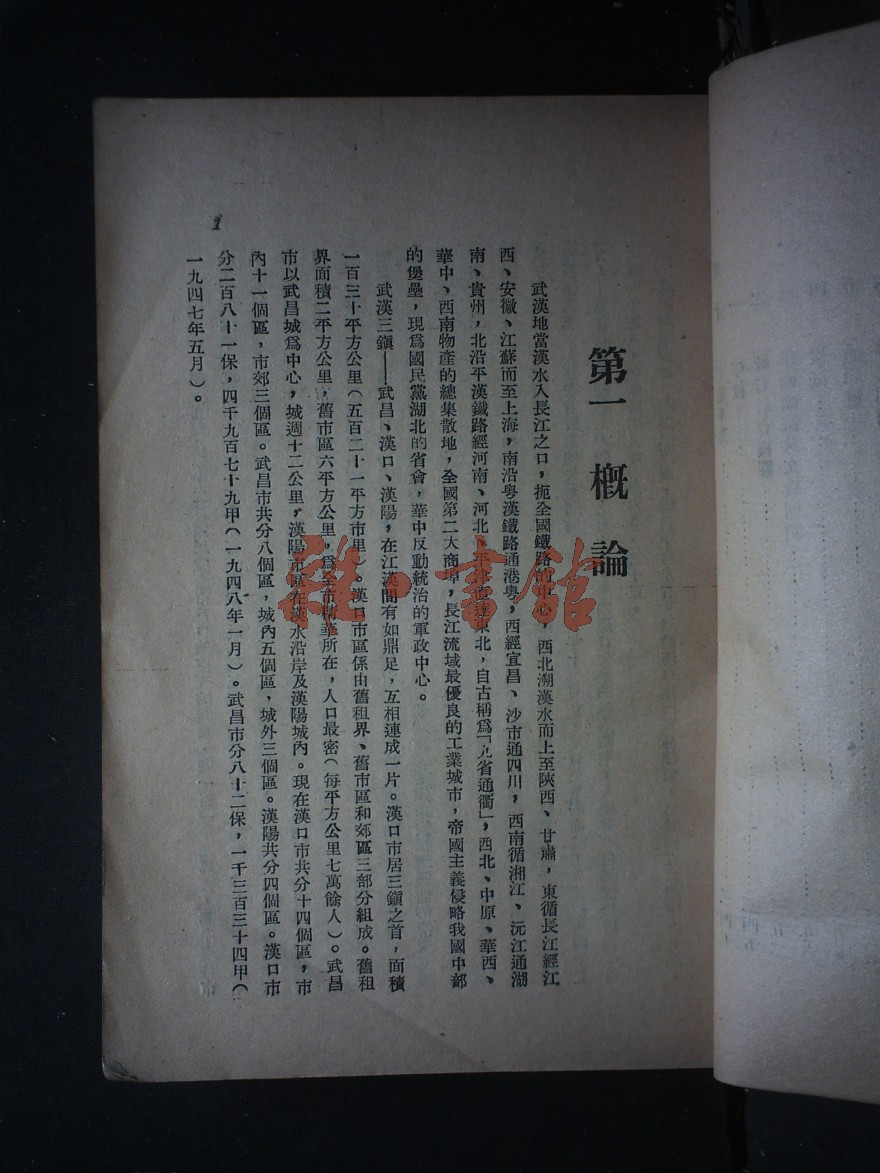 第一 概論
武漢地當漢水入長江之口，扼全國鐵路的中心，西北溯漢水而上至陝西、甘肅，東循長江經江
西、安徽、江蘇而至上海，南沿粵漢鐵路通港粵，西經宜昌、沙市通四川，西南循湘江、沅江通湖
南、貴州，北沿平漢鐵路經河南、河北、平津直達東北，自古稱爲「九省通衢」，西北、中原、華西、
華中、西南物產的總集散地，全國第二大商埠，長江流域最優良的工業城市，帝國主義侵略我國中部
的堡壘，現爲國民黨湖北的省會，華中反動統治的軍政中心。
武漢三鎭——武昌、漢口、漢陽，在江漢間有如鼎足，互相連成一片。漢口市居三鎭之首，面積
一百三十平方公里（五百二十一平方市里）。漢口市區係由舊租界、舊市區和郊區三部分組成。舊租
界面積二平方公里，舊市區六平方公里，爲全市精華所在，人口最密（每平方公里七萬餘人）。武昌
市以武昌城爲中心，城週十二公里，漢陽市區在漢水沿岸及漢陽城內。現在漢口市共分十四個區，市
內十一個區，市郊三個區。武昌市共分八個區，城內五個區，城外三個區。漢陽共分四個區。漢口市
分二百八十一保，四千九百七十九甲（一九四八年一月）。武昌市分八十二保，一千三百三十四甲（
一九四七年五月）。
1
雒·書館